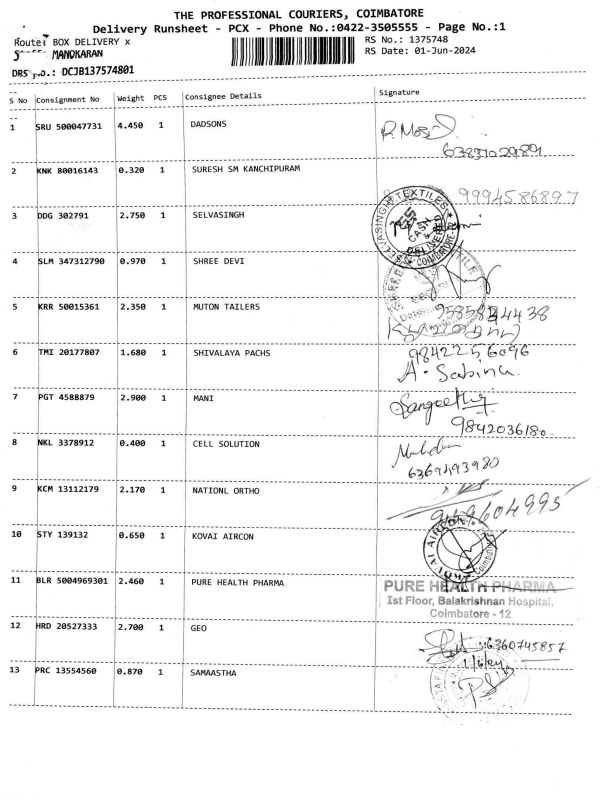 THE PROFESSIONAL COURIERS, COIMBATORE
Delivery Runsheet - PCX - Phone No.:0422-3505555 - Page No.:1
Route: BOX DELIVERY x
RS No.: 1375748
MANOKARAN
RS Date: 01-Jun-2024
DRS No.: DCJB137574801
S No Consignment No Weight PCS Consignee Details Signature
1 SRU 500047731 4.450 1 DADSONS
2 KNK 80016143 0.320 1 SURESH SM KANCHIPURAM
9994586897
3 DDG 302791 2.750 1 SELVASINGH
SELVASINGH TEXTILES
CASH
DELIVERED
COIMBATORE
4 SLM 347312790 0.970 1 SHREE DEVI
5 KRR 50015361 2.350 1 MUTON TAILERS
6 TMI 20177807 1.680 1 SHIVALAYA PACHS
9842256096
A. Sabina.
7 PGT 4588879 2.900 1 MANI
Sangeetha
9842036180.
8 NKL 3378912 0.400 1 CELL SOLUTION
6369493980
9 KCM 13112179 2.170 1 NATIONL ORTHO
10 STY 139132 0.650 1 KOVAI AIRCON
KOVAI AIRCON
Coimbatore
11 BLR 5004969301 2.460 1 PURE HEALTH PHARMA
PURE HEALTH PHARMA
Ist Floor, Balakrishnan Hospital,
Coimbatore - 12
12 HRD 20527333 2.700 1 GEO
6360745857
1/6/24
13 PRC 13554560 0.870 1 SAMAASTHA